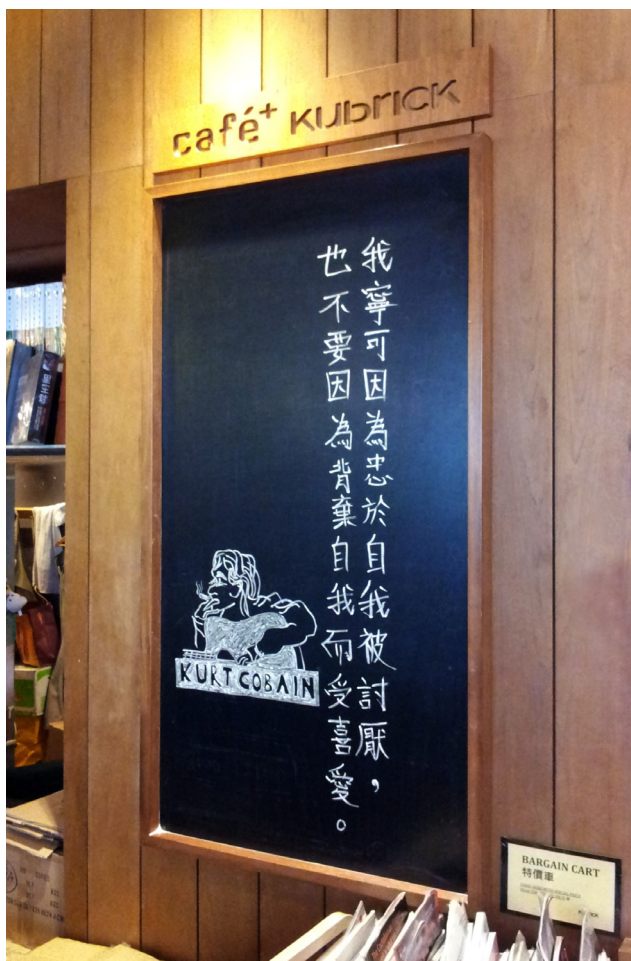 café+ KUBRICK
我寧可因為忠於自我被討厭，
也不要因為背棄自我而受喜愛。
KURT COBAIN
BARGAIN CART
特價車